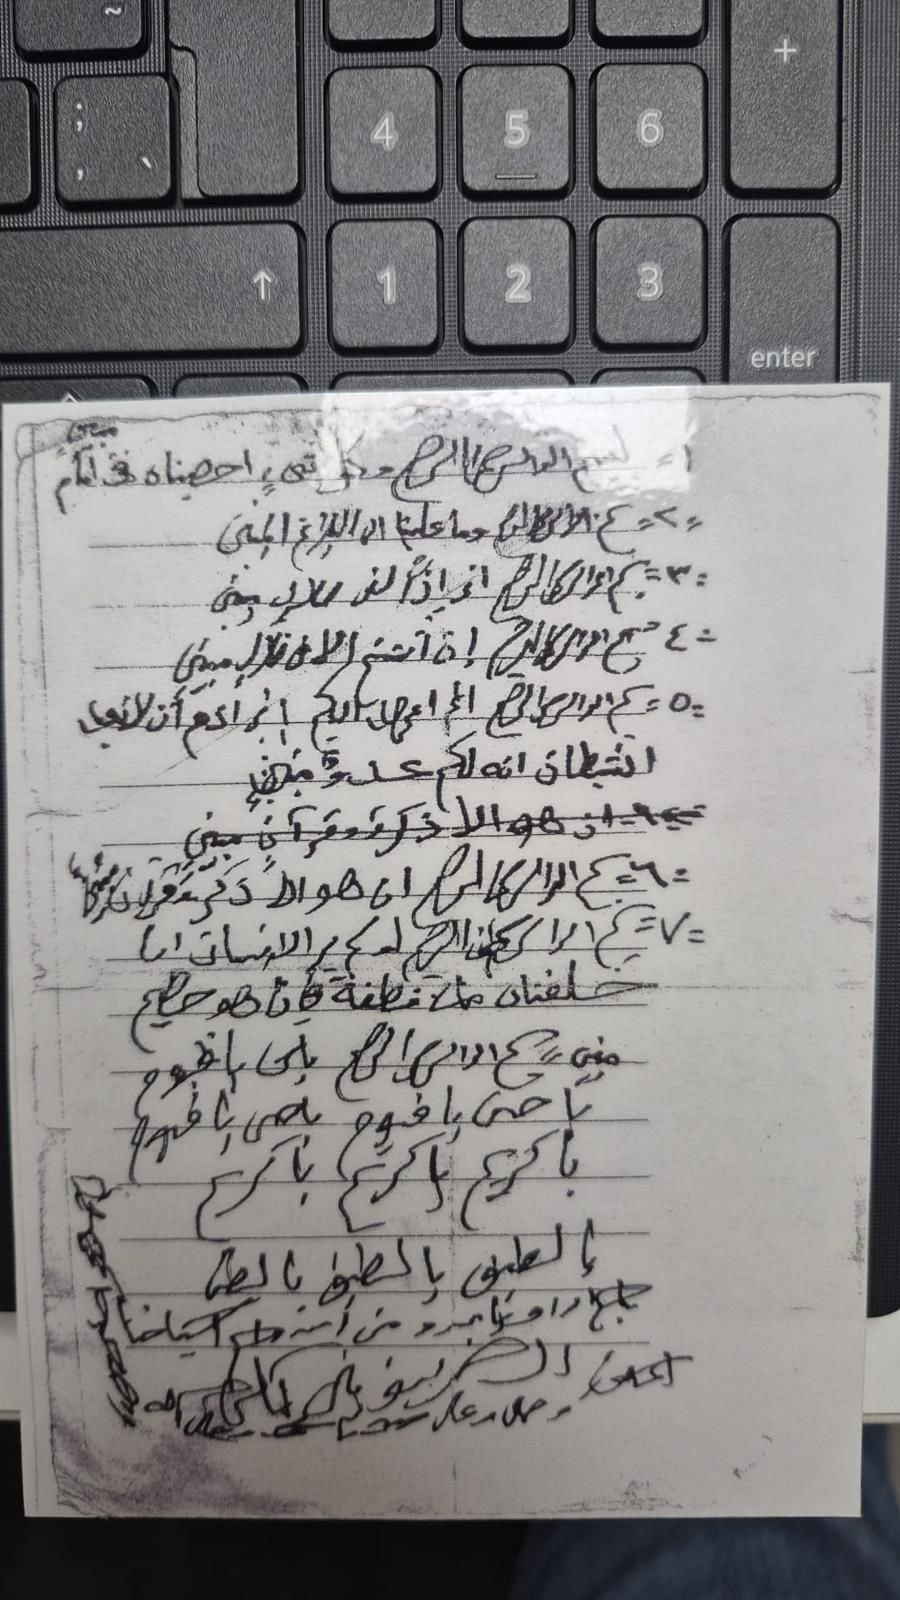 ~
;
,
`
4
5
6
+
↑
1
2
3
enter
مبين
١= بسم الله الرحمن الرحيم وكل شيء احصيناه في امام
٢= بسم الله الرحمن الرحيم وما علينا الا البلاغ المبين
٣= بسم الله الرحمن الرحيم اني اذاً لفي ضلال مبين
٤= بسم الله الرحمن الرحيم إن أنتم الا في ضلال مبين
٥= بسم الله الرحمن الرحيم الم اعهد اليكم أن لا تعبدوا
الشيطان انه لكم عدوٌ مبين
ان هو الا ذكر وقرآن مبين
٦= بسم الله الرحمن الرحيم ان هو الا ذكر وقرآن مبين
٧= بسم الله الرحمن الرحيم اولم ير الانسان انا
خلقناه من نطفة فإذا هو خصيم
مبين بسم الله الرحمن الرحيم ياحي ياقيوم
يا حي يا قيوم ياحي يا قيوم
يا كريم يا كريم يا كريم
يا لطيف يا لطيف يا لطيف